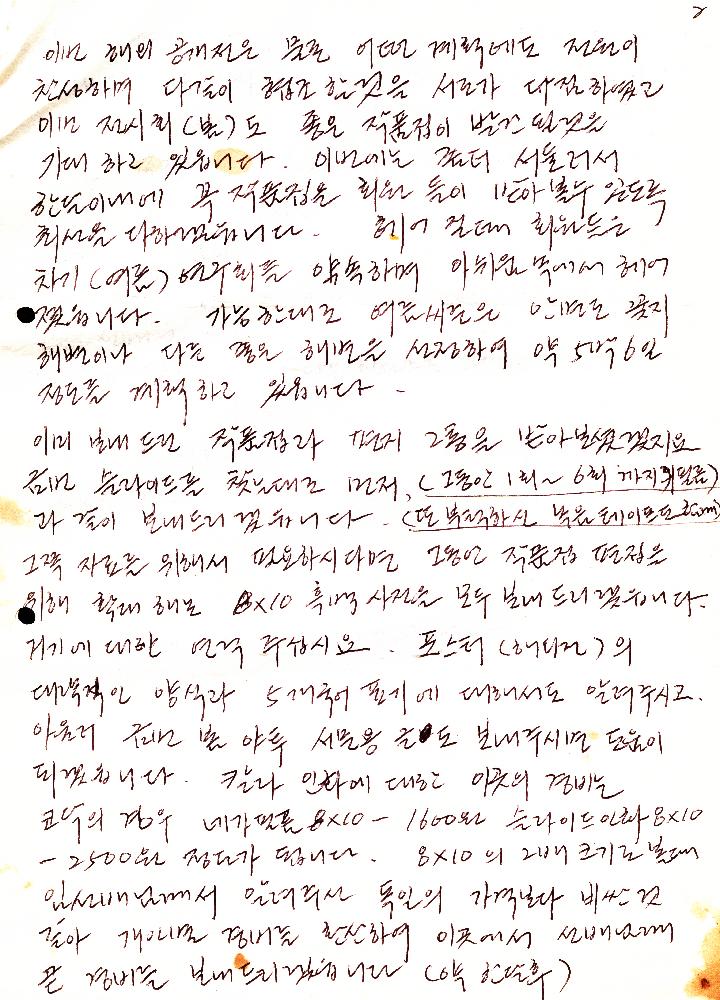 2
이번 해외 공개전은 물론 어떤 계획에도 전원이
찬성하며 다같이 협조할것을 서로가 다짐하였고
이번 전시회(봄)도 좋은 작품집이 발간 될것을
기대 하고 있읍니다. 이번에는 좀더 서둘러서
한달이내에 꼭 작품집을 회원 들이 받아 볼수 있도록
최선을 다하겠읍니다. 헤어 질때 회원들은
차기(여름) 연구회를 약속하며 아쉬운 속에서 헤어
졌읍니다. 가능한대로 여름에는 안면도 꽃지
해변이나 다른 좋은 해변을 선정하여 약 5박6일
정도를 계획 하고 있읍니다.
이미 보내 드린 작품집과 편지 2통을 받아보셨겠지요
금번 슬라이드를 찾는대로 먼저, (그동안 1회~6회 까지 필름)
과 같이 보내드리겠읍니다. (또 부탁하신 녹음테이프도
그쪽 자료를 위해서 필요하시다면 그동안 작품집 편집을
위해 확대 해논 8x10 흑백 사진을 모두 보내 드리겠읍니다.
거기에 대한 연락 주십시요. 포스터 의
대략적인 양식과 5개국어 표기에 대해서도 알려주시고.
아울러 금번 봄 야투 서문용 글도 보내주시면 도움이
되겠읍니다. 칼라 인화에 대한 이곳의 경비는
코닥의 경우 네가필름 8x10 - 1600원 슬라이드인화 8x10
- 2500원 정도가 됩니다. 8x10 의 2배 크기로 볼때
임선배님께서 알려주신 독일의 가격보다 비싼것
같아 개인별 경비를 환산하여 이곳에서 선배님께
곧 경비를 보내드리겠읍니다 (약 한달후)